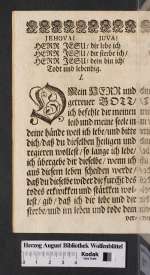 JEHOVA! JUVA!
HERR JESU/ dir lebe ich
HERR JESU/ dir sterbe ich/
HERR JESU/ dein bin ich/
Todt und lebendig.
I.
O Mein HERR und
getreuer GOTT/
ich befehle dir meinen
leib und meine seele in
deine hände weil ich lebe/ und bitte
dich/ daß du dieselben heiligen und
regieren wollest/ so lange ich lebe/
ich übergebe dir dieselbe/ wenn ich
aus diesem leben scheiden werde/
daß du dieselbe wider die furcht des
todes erkwicken und stärcken wol-
lest/ gib/ daß ich dir lebe und dir
sterbe/ und im leben und tode dein
ver-
Herzog August Bibliothek Wolfenbüttel
Kodak